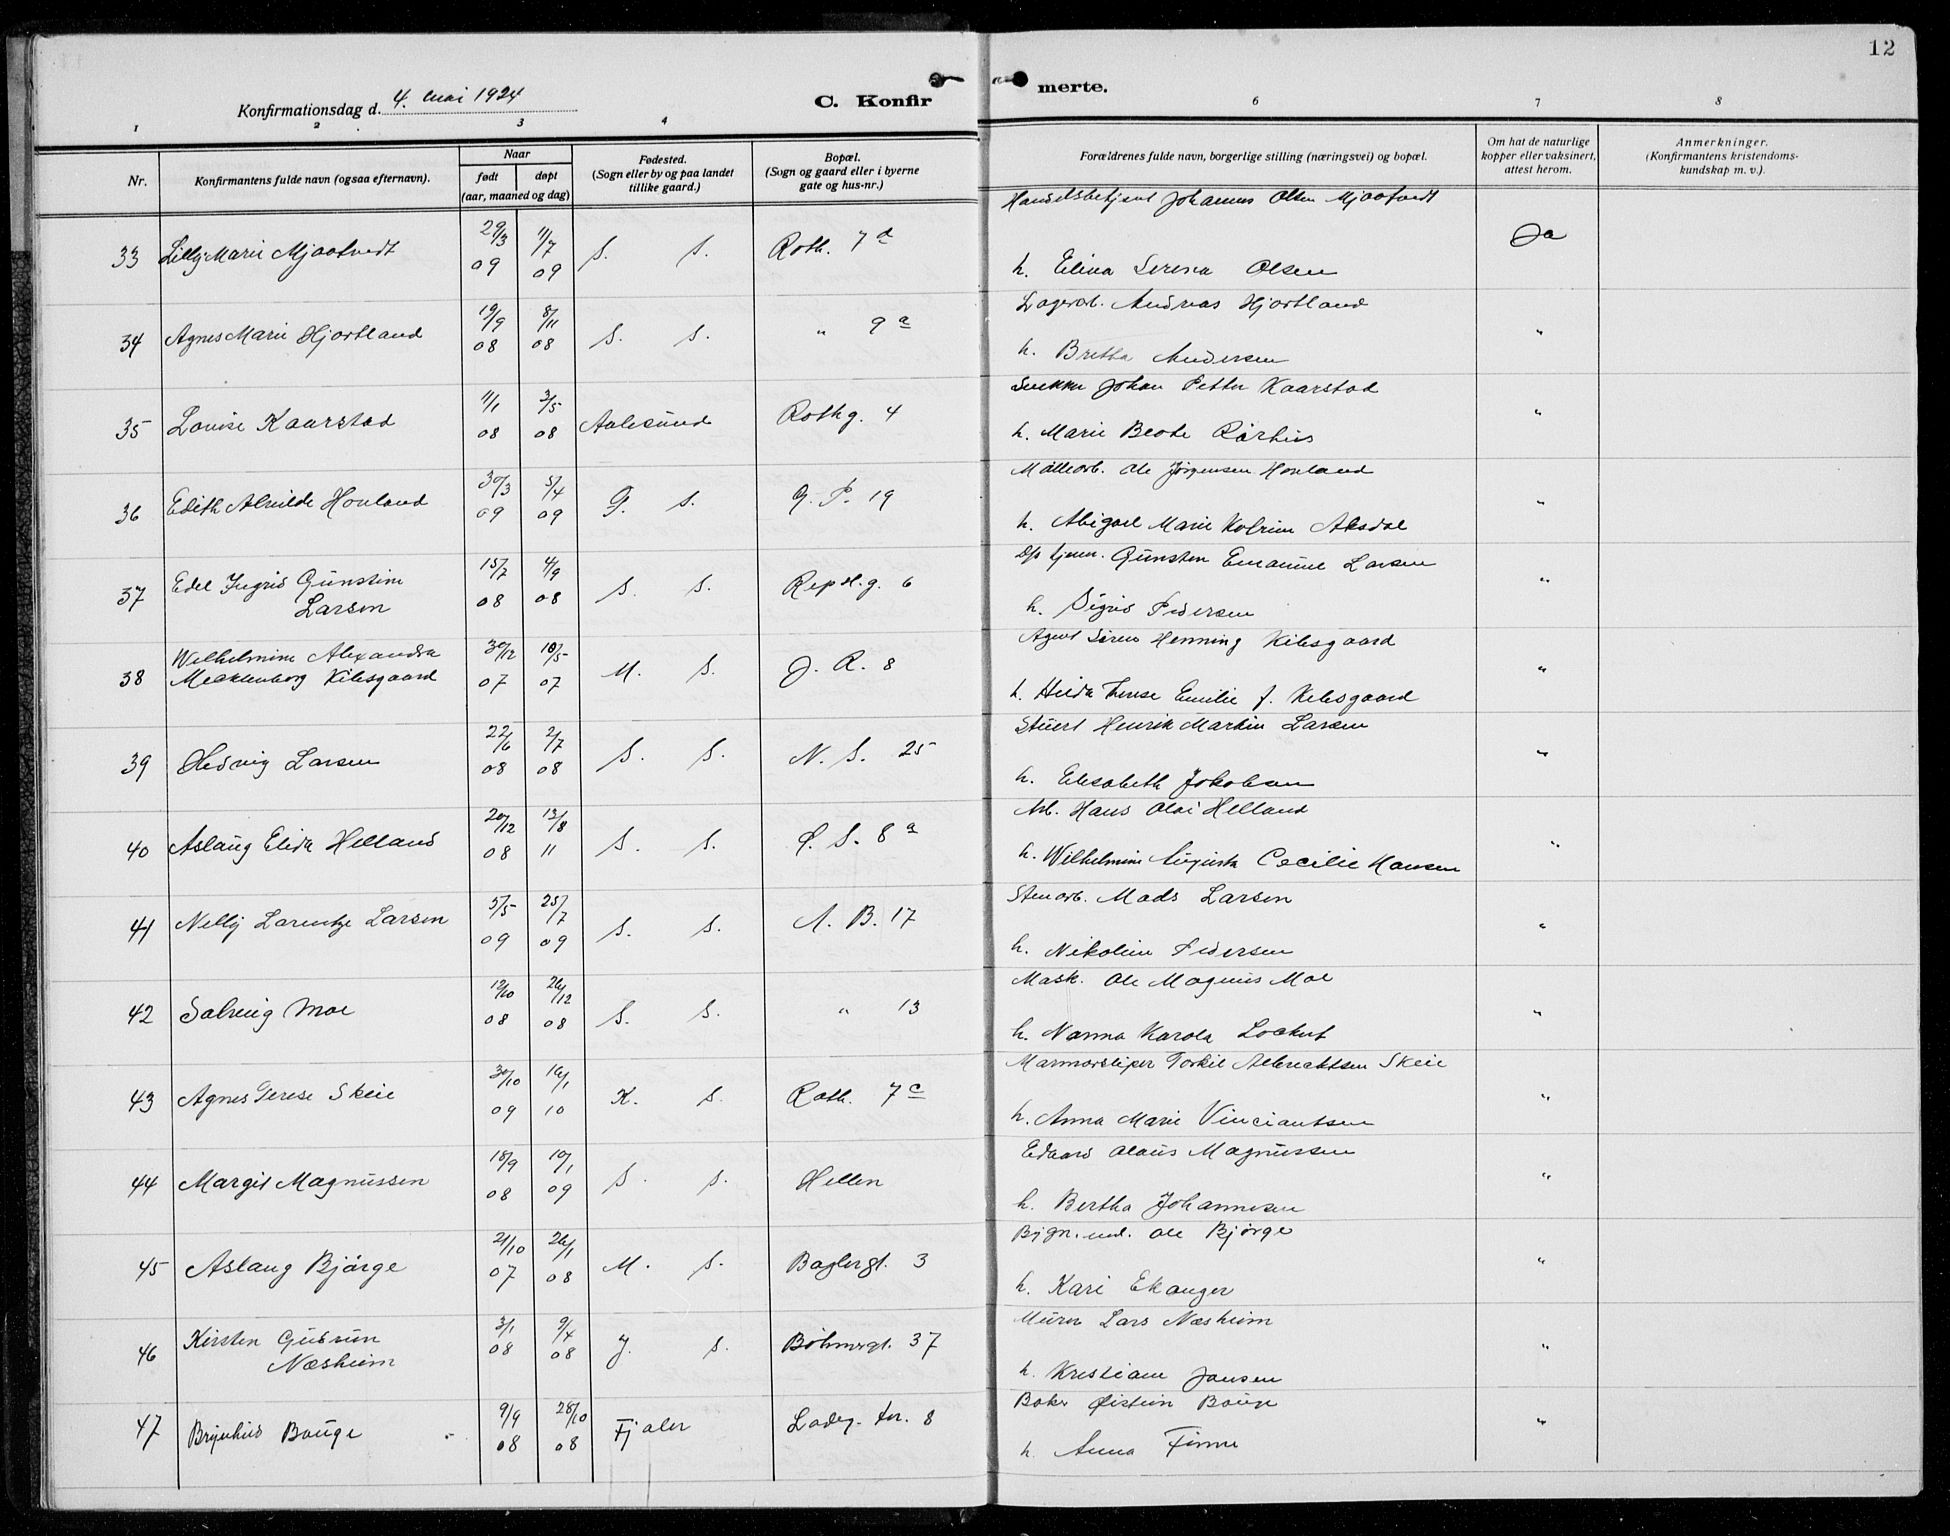 12
Konfirmationsdag d. 4. mai 1924
C. Konfir merte.
1 2 3 4 6 7 8
Nr.
Konfirmantens fulde navn (ogsaa efternavn).
Naar
født døpt
(aar, maaned og dag)
Fødested.
(Sogn eller by og paa landet
tillike gaard.)
Bopæl.
(Sogn og gaard eller i byerne
gate og hus-nr.)
Forældrenes fulde navn, borgerlige stilling (næringsvei) og bopæl.
Om hat de naturlige
kopper eller vaksinert,
attest herom.
Anmerkninger.
(Konfirmantens kristendoms-
kundskap m. v.).
Handelsbetjent Johannes Olsen Mjaatvedt
33 Lilly Marie Mjaatvedt 29/3 09 11/7 09 S. S. Roth. 7 d Ja
h. Elina Serina Olsen
Lagerarb. Andreas Hjortland
34 Agnes Marie Hjortland 19/9 08 8/11 08 S. S. " 9 a "
h. Bretha Andersen
Snekker Johan Petter Kaarstad
35 Lovise Kaarstad 11/1 08 3/5 08 Aalesund Rothg. 4 "
h. Marie Beate Rørhus
Mölleorb. Ole Jørgensen Hovland
36 Edith Alvilde Hovland 30/3 09 5/4 09 G. S. G. P. 19 "
h. Abigael Marie Kolrine Aksdal
Gunsten Emanuel Larsen
37 Edel Ingrid Gunstine
Larsen 15/7 08 4/9 08 S. S. Repsl.g. 6 "
h. Sigrid Pedersen
Agent Søren Henning Kilsgaard
38 Wilhelmine Alexandra
Mecklenborg Kilsgaard 30/12 07 10/5 07 M. S. J. R. 8 "
h. Hilda Therese Emilie f. Kilsgaard
Stuert Henrik Martin Larsen
39 Hedvig Larsen 22/6 08 2/7 08 S. S. N. S. 25 "
h. Elisabeth Jakobsen
Arb. Hans Olai Helland
40 Aslaug Elida Helland 20/12 08 13/8 11 S. S. Ø. S. 8 a "
h. Wilhelmine Augusta Cecilie Hansen
Stenarb. Mads Larsen
41 Nelly Larentze Larsen 5/5 09 25/7 09 S. S. A. B. 17 "
h. Nikoline Pedersen
Mask. Ole Magnus Moe
42 Solveig Moe 12/10 08 26/12 08 S. S. " 13 "
h. Nanna Karola Lockert
Marmorsliper Torkil Albrechtsen Skeie
43 Agnes Terese Skeie 30/10 09 16/1 10 K. S. Roth. 7 c "
h. Anna Marie Vinciantsen
Edvard Olaus Magnussen
44 Margit Magnussen 18/9 08 10/1 09 S. S. Hellen "
h. Bertha Johannesen
Bygn. ole Bjørge
45 Aslaug Bjørge 21/10 07 26/1 08 M. S. Baglergt. 3 "
h. Kari Ekanger
Murer Lars Næsheim
46 Kirsten Gudrun
Næsheim 3/1 08 9/4 08 J. S. Bøhmergt. 37 "
h. Kristiane Jansen
Baker Øistein Bauge
47 Brynhild Bauge 9/9 08 28/10 08 Fjaler Ladeg. ter. 8 "
h. Anna Finne